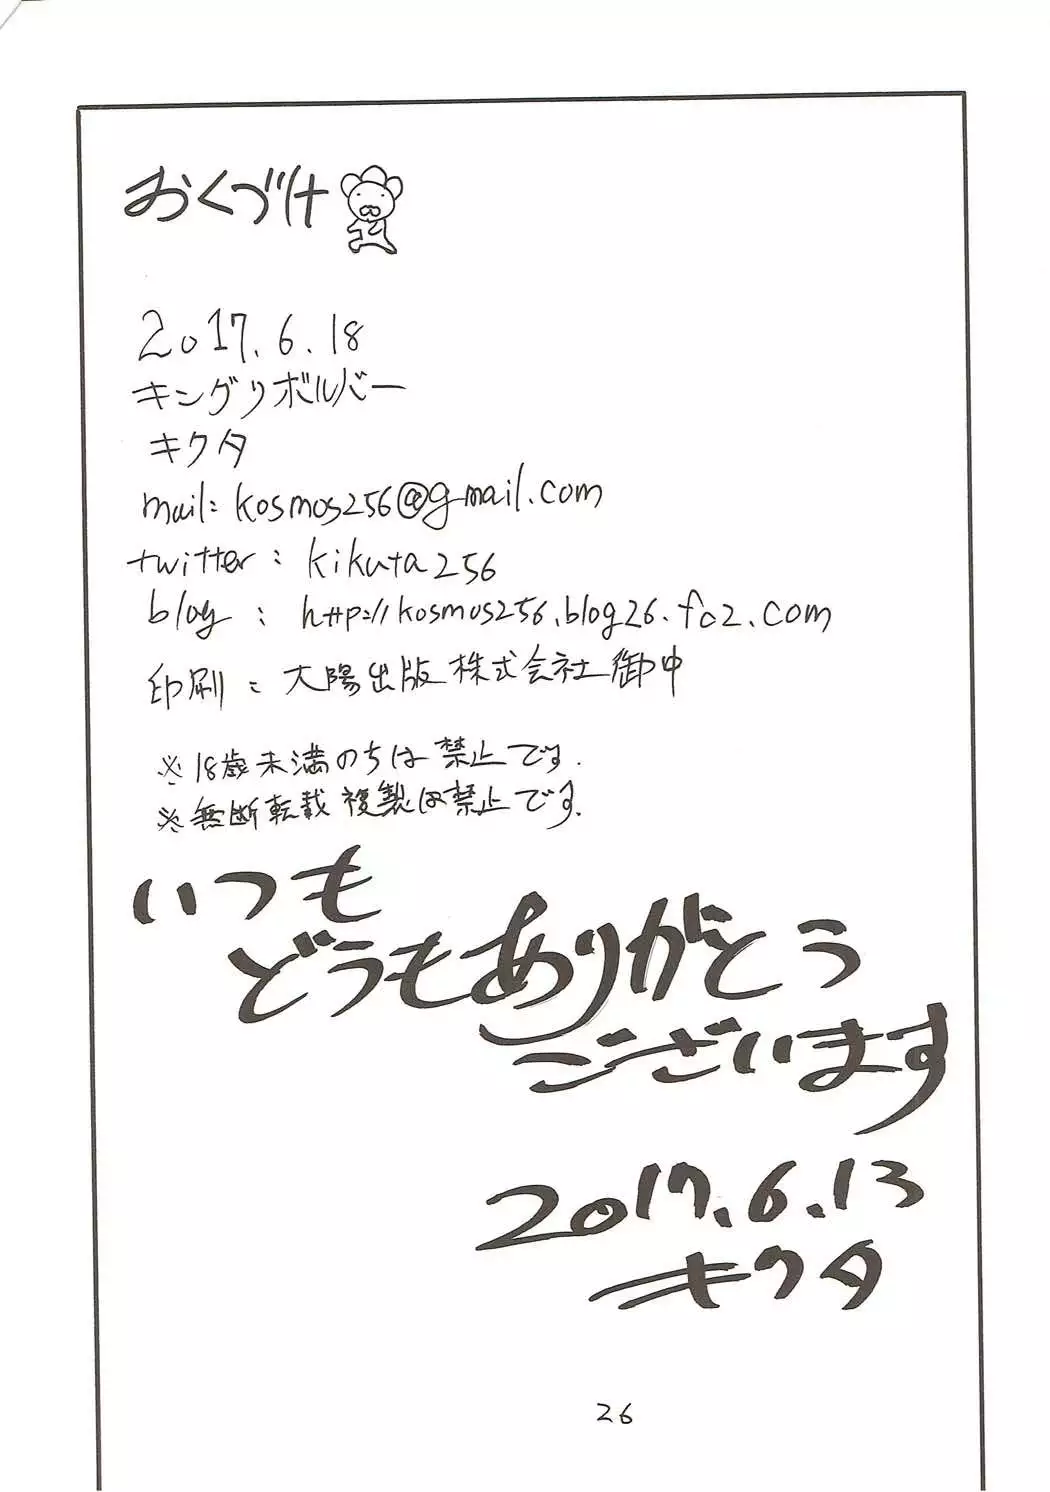 おくづけ
2017.6.18
キングリボルバー
キクタ
mail: kosmos256@gmail.com
twitter: kikuta256
blog: http://kosmos256.blog26.fc2.com
印刷: 大陽出版株式会社御中
※18歳未満のちは禁止です.
※無断転載複製は禁止です.
いつも
どうもありがとう
ございます
2017.6.13
キクタ
26